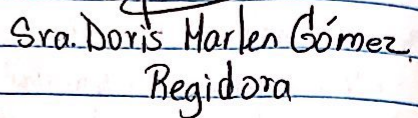 Sra. Doris Marlen Gómez.
Regidora